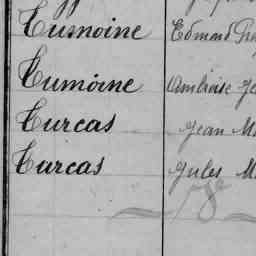 Tumoine Edmond
Tumoine Ambroise
Turcas Jean M
Turcas Jules M